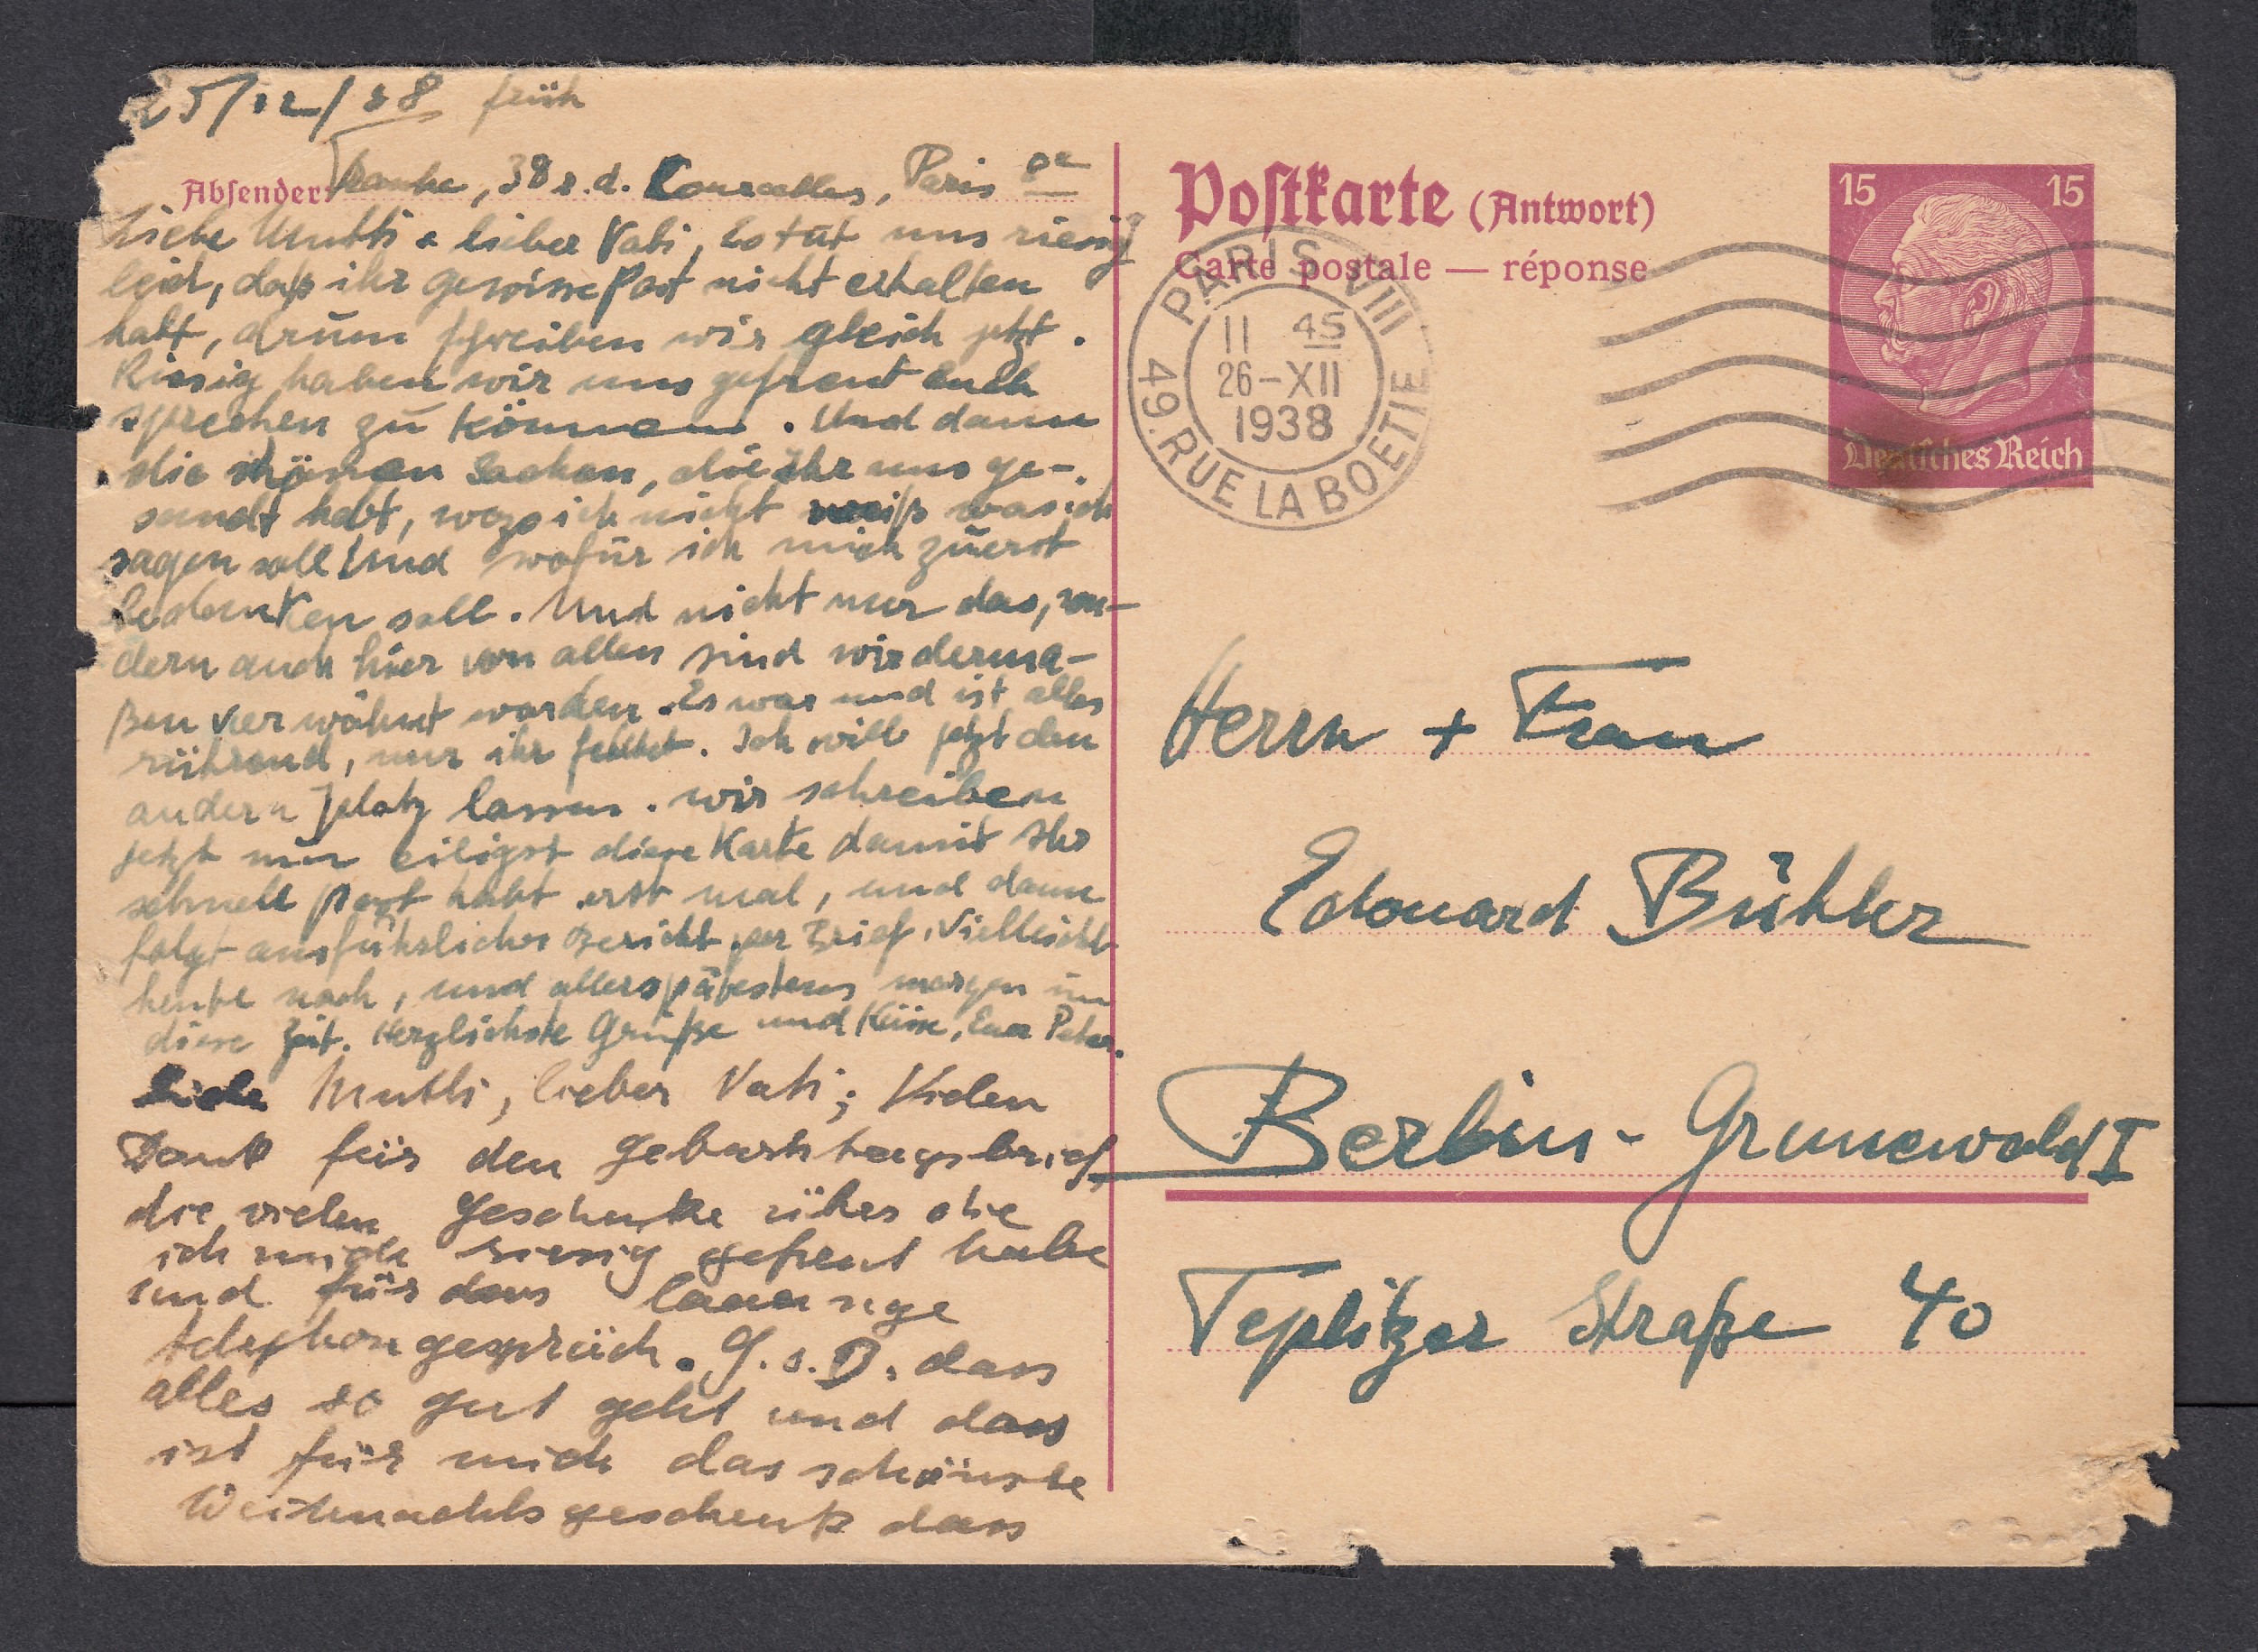 25/12/38 früh
Absender: Franke, 38 r. d. Courcelles, Paris 8e
Liebe Mutti & lieber Vati, Es tut uns riesig
leid, daß ihr gewisse Post nicht erhalten
habt, drum schreiben wir gleich jetzt.
Riesig haben wir uns gefreut euch
sprechen zu können. Und dann
die schönen Sachen, die Ihr uns ge-
sandt habt, wozu ich nicht weiß was ich
sagen soll Und wofür ich mich zuerst
bedanken soll. Und nicht nur das, son-
dern auch hier von allen sind wir derma-
ßen verwöhnt worden. Es war und ist alles
rührend, nur ihr fehltet. Ich will jetzt den
andern Platz lassen. wir schreiben
jetzt nur eiligst diese Karte damit Ihr
schnell Post habt erst mal, und dann
folgt ausführlicher Bericht per Brief. Vielleicht
heute noch, und allerspätestens morgen um
diese Zeit. Herzlichste Grüße und Küsse, Euer Peter.
Liebe Mutti, lieber Vati; Vielen
Dank für den Geburtstagsbrief,
die vielen Geschenke über die
ich mich riesig gefreut habe
und für das laaange
telephongespräch. G. s. D. dass
alles so gut geht und dass
ist für mich das schönste
Weihnachtsgeschenk dass
Postkarte (Antwort)
Carte postale — réponse
15 15
Deutsches Reich
PARIS VIII
11 45
26-XII
1938
49. RUE LA BOETIE
Herrn + Frau
Edouard Bühler
Berlin-Grunewald I
Teplitzer Straße 40